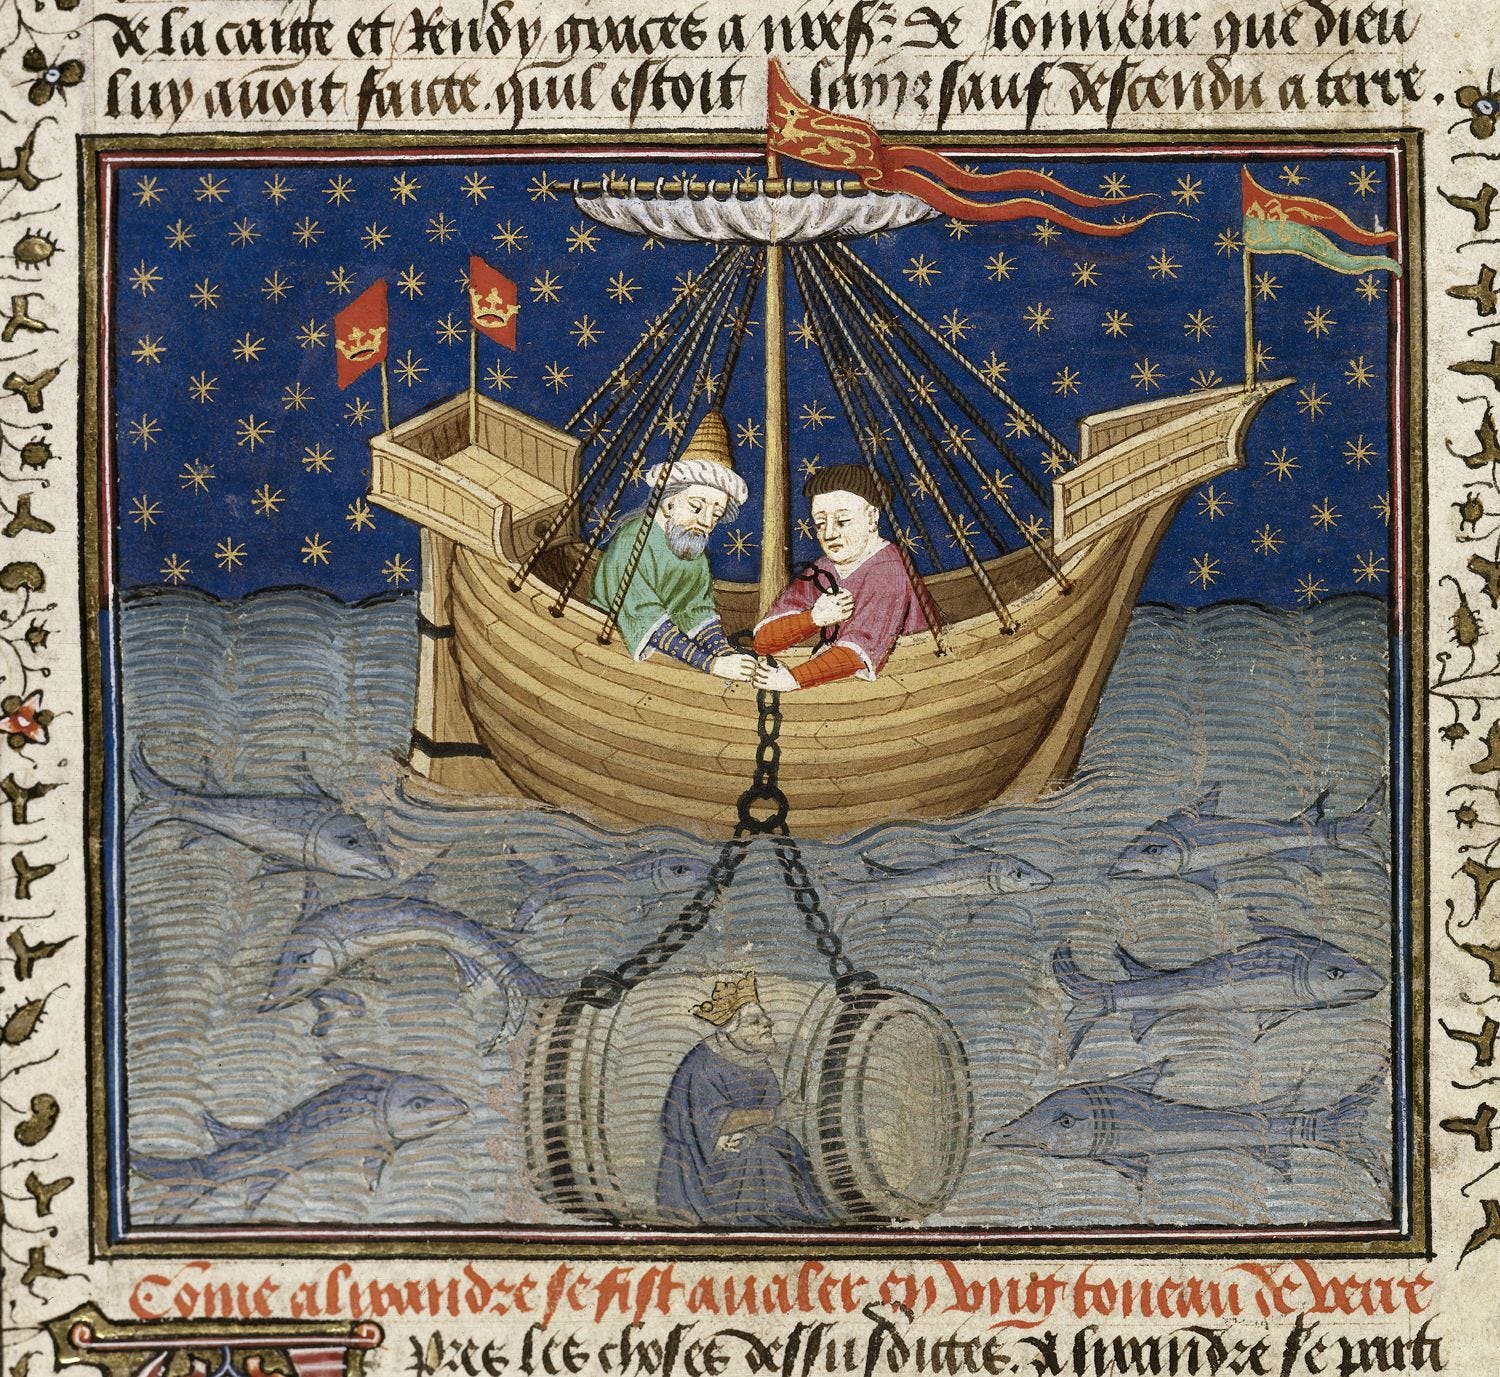 de la caige et Rendy graces a nresz. De lonneur que dieu
luy auoit faicte. quil estoit sain z sauf descendu a terre.
Come alixandre se fist aualer en vng tonneau de verre
pres les choses dessusdictes. Alixandre se parti